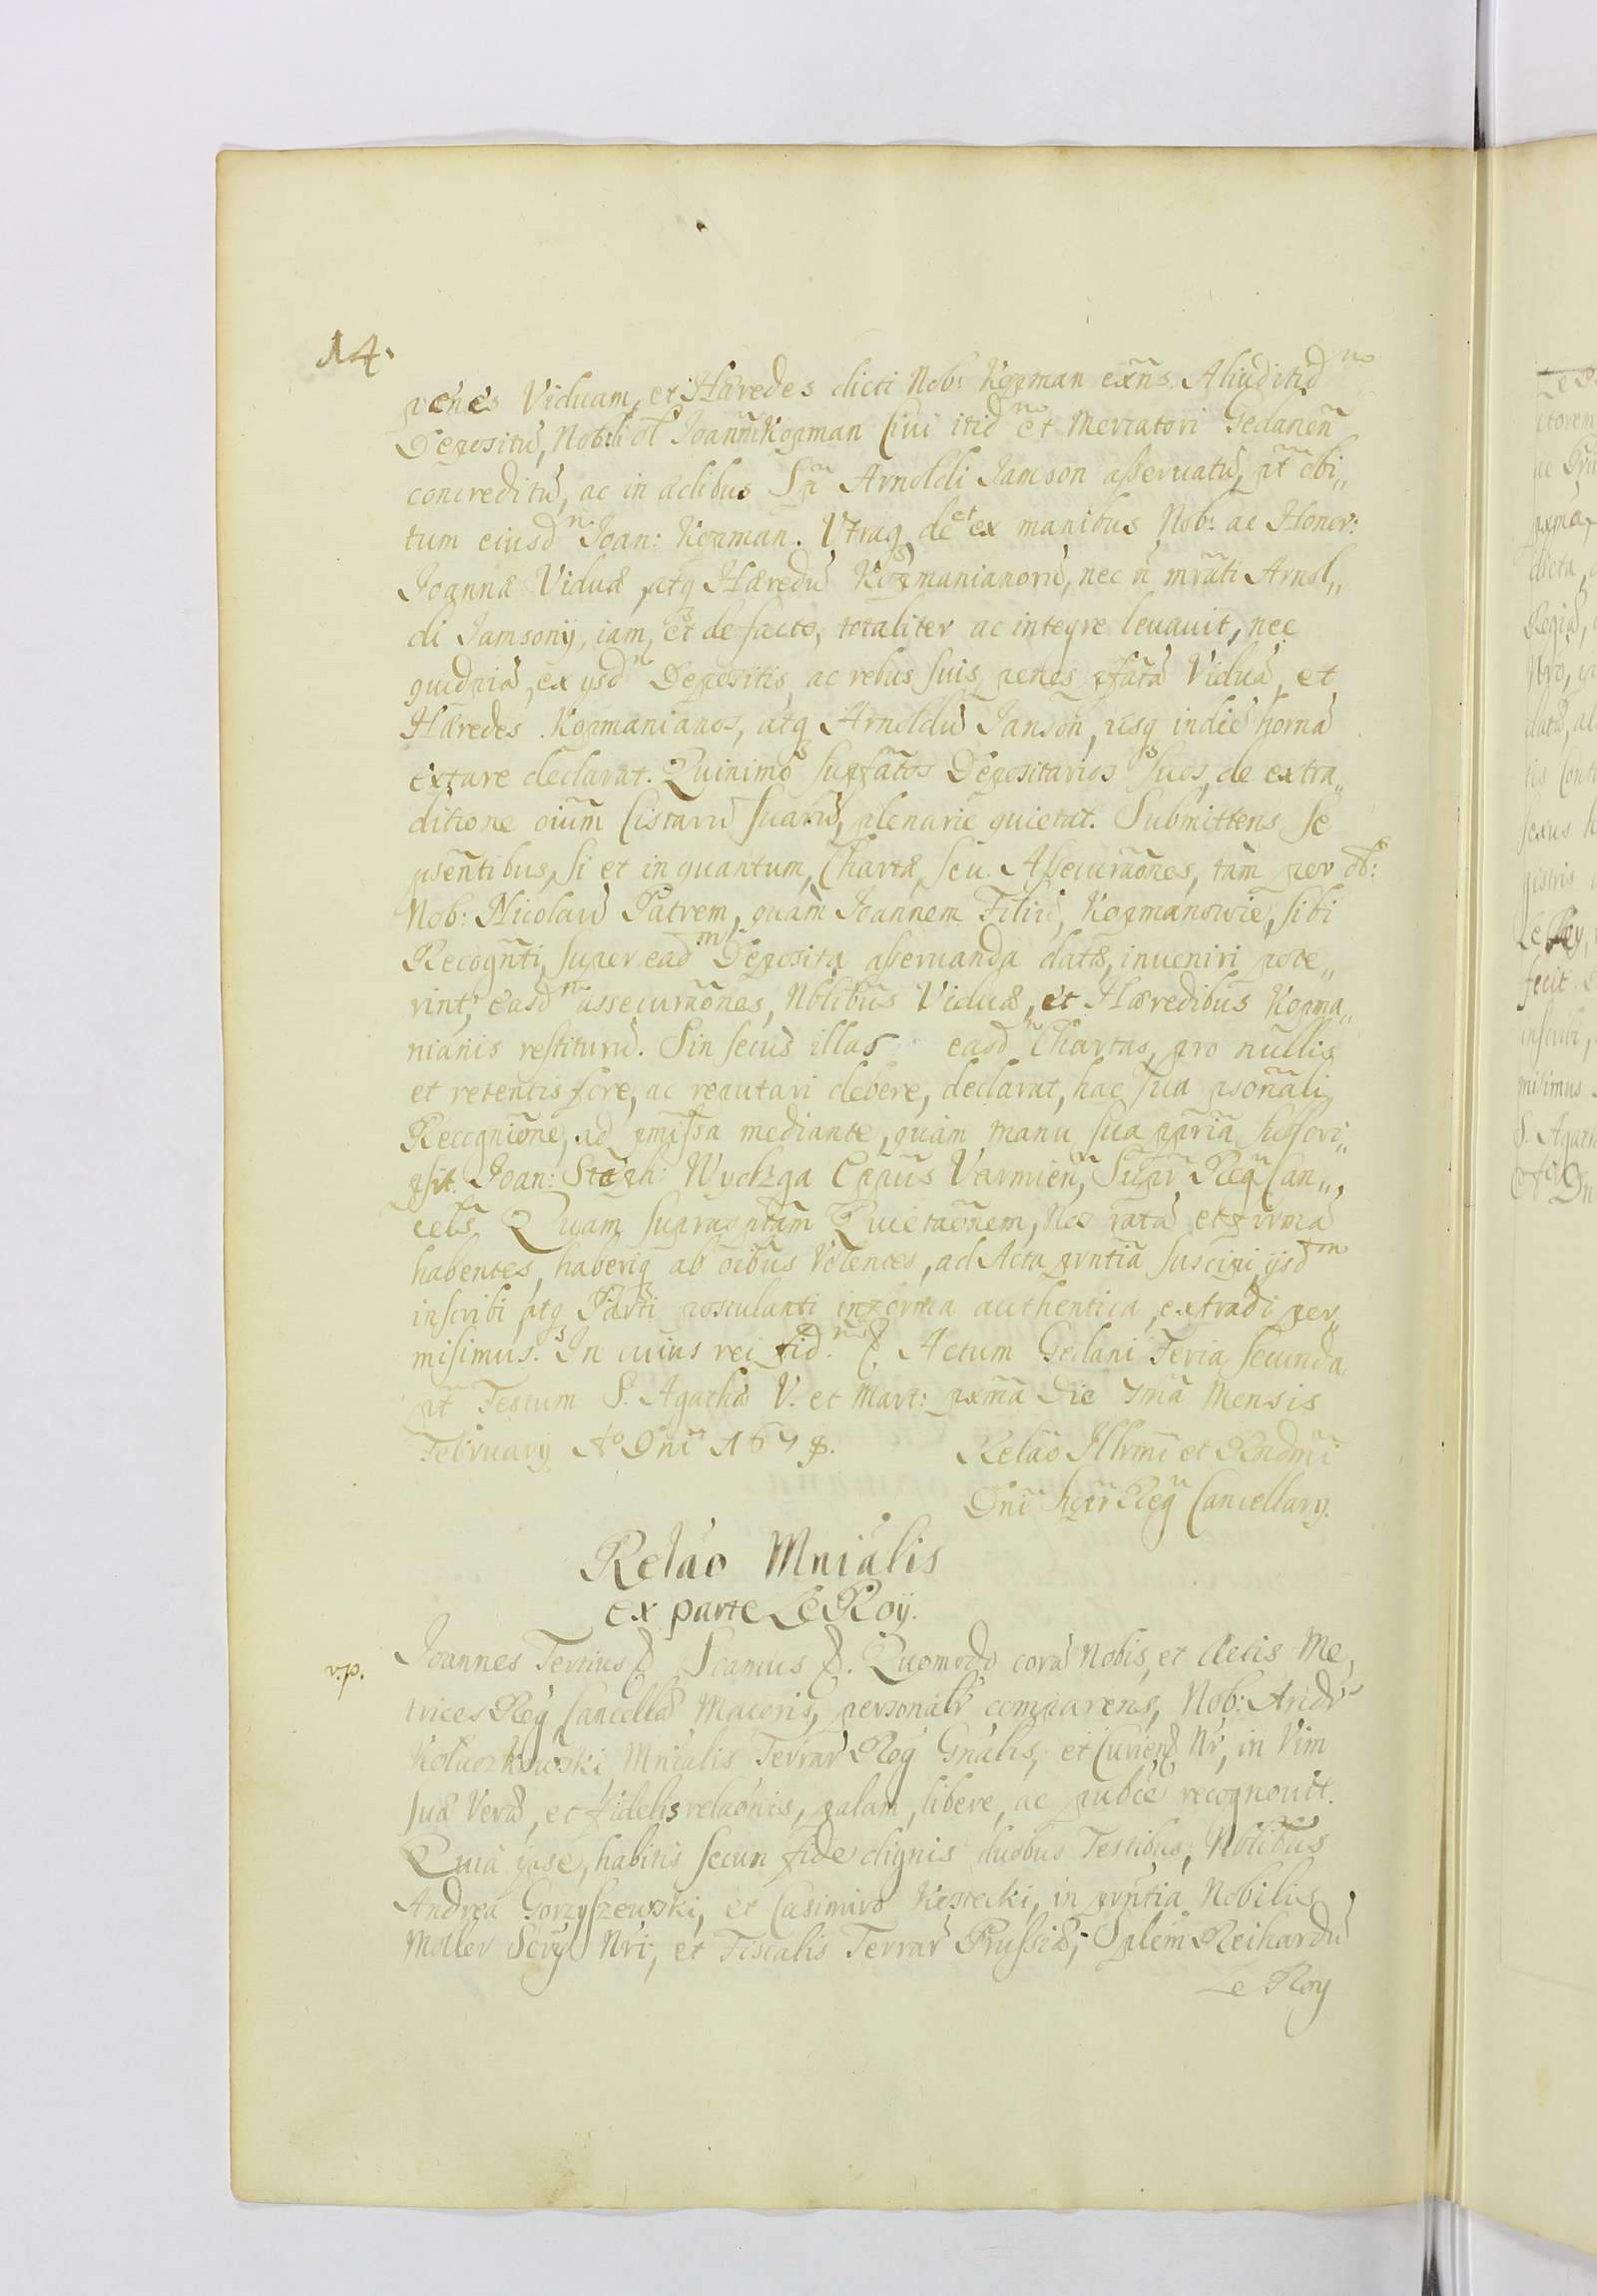 14.
penes Viduam, et Hæredes dicti Nob: Kopman exñs. Aliud itidno
Depositũ, Nobili ol Joanni Kopman Civi itidno et Mercatori Gedanen̄
concreditũ, ac in ædibus Sp̃ Arnoldi Jamson asservatũ, p̃t obi„
tum eiusdn Joan: Kopman. Utraq, de et ex manibus Nob: ac Honor:
Joannæ Viduæ atq Hæredũ Kopmanianorũ, nec ñ mrãti Arnol„
di Jamsonij, iam, et de facto, totaliter ac integre levavit, nec
quidpiã, ex ysdn Depositis ac rebus suis, penes p̃fatã Viduã, et
Hæredes Kopmanianos, atq Arnoldũ Janson, usq in diẽ hornã
extare declarat. Quinimo sup̃fatos Depositarios suos, de extra„
ditione oium̃ Cistarũ suarũ, plenarie quietat. Submittens se
p̃sentibus, si et in quantum, Chartæ, seu Assecurãones, tam per ol:
Nob: Nicolaũ Patrem, quàm Joannem Filiũ, Kopmanowie, sibi
Recognti, super eadm Deposita asservanda datæ, inveniri pote„
rint, easdn assecurãones, Nblibus Viduæ, et Hæredibus Kopma„
nianis restiturũ. Sin secus illas easdn Chartas, pro nullis
et retentis fore, ac reputari debere, declarat, hac sua p̃sonali
Recognitione, ad p̃missa mediante, quàm manu sua p̃pria subscri„
psit. Joan: Steph: Wydzga Epp̃us Varmien̄, Sup̃r Regñ Can„
cel̃s Quam supras̃ptam Quietaõnem, Nos ratã et firmã
habentes, haberiq ab oĩbus Volentes, ad Acta p̃rntia suscipi, ysdm
inscribi, atq Parti postulanti in forma authentica, extradi per„
misimus. In cuius rei fid.m &. Actum Gedani Feria secunda
p̃t Festum S. Agathæ V. et Mart: pxmã Die 7mã Mensis
February Ao Dñi 1678. Relão Illrmi et Rndmi
Dñi sup̃r Regñ Cancellary.
Relão Mnialis
ex parte Le Roÿ.
v.p.
Joannes Tertius & Scamus &. Quomodo corã Nobis, et Actis Me„
trices Reg̃ Cancellæ Maioris, personalr comparens, Nob: Andr̃
Kołaczkowski Mnialis Terrar̃ Reg̃ Gnãlis, et Curiens Nr̃, in Vim
suæ Veræ, et fidelis relaõnis, palam, libere, ac pubce recognovit.
Quia ipse, habitis secum fide dignis duobus Testibus, Nblibus
Andrea Gorzyszewski, et Casimiro Kestecki, in p̃rntia Nobilis
Moller Scry Nri, et Fiscalis Terrar̃ Prussiæ, Splem Reihardũ
Le Roy